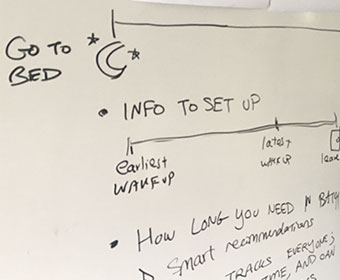 GO TO
BED
• INFO TO SET UP
earliest
WAKE UP
latest
WAKE UP
• HOW LONG YOU NEED IN BATH
Smart recommendations
TRACKS EVERYONE;
TIME, AND CAN